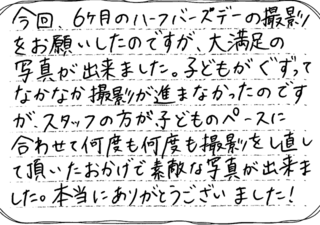 今回、6ヶ月のハーフバーズデーの撮影
をお願いしたのですが、大満足の
写真が出来ました。子どもがぐずって
なかなか撮影が進まなかったのです
が、スタッフの方が子どものペースに
合わせて何度も何度も撮影をし直し
て頂いたおかげで素敵な写真が出来ま
した。本当にありがとうございました!